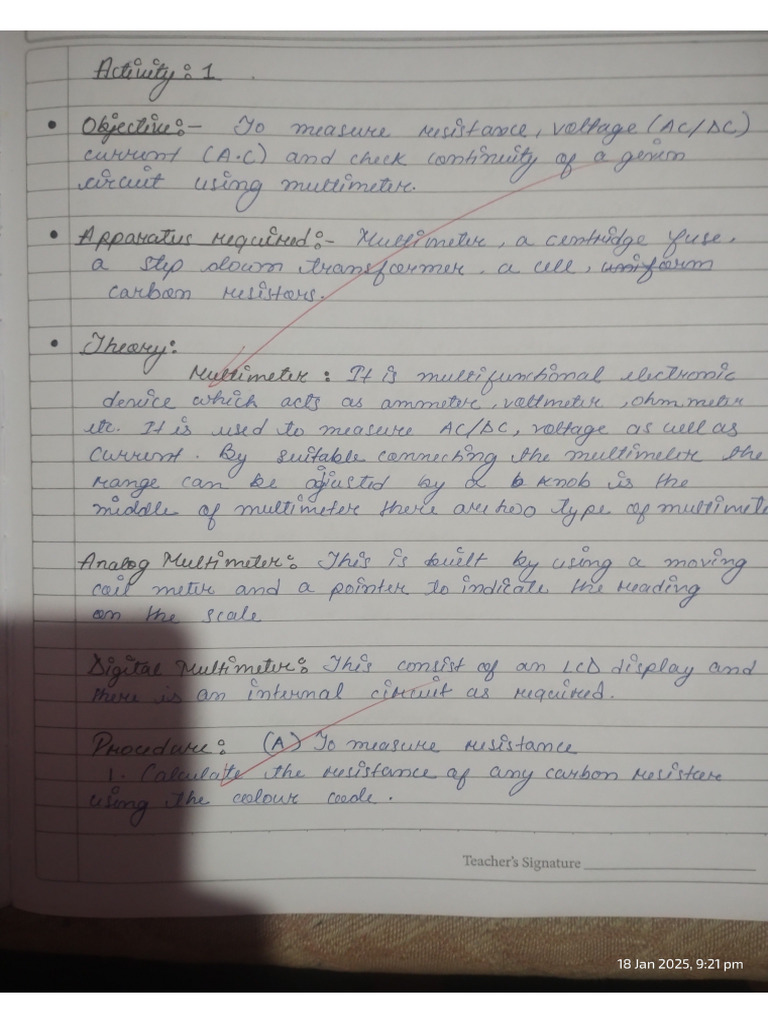 Activity: 1
• Objective:- To measure resistance, voltage (AC/DC)
current (A.C) and check continuity of a given
circuit using multimeter.
• Apparatus required:- Multimeter, a centridge fuse,
a step down transformer, a cell, uniform
carbon resistors.
• Theory:
Multimeter: It is multifunctional electronic
device which acts as ammeter, voltmeter, ohm meter
etc. It is used to measure AC/DC, voltage as well as
current. By suitable connecting the multimeter the
range can be adjusted by a knob is the
middle of multimeter there are two type of multimete
Analog Multimeter: This is built by using a moving
coil meter and a pointer to indicate the reading
on the scale
Digital Multimeter: This consist of an LCD display and
there is an internal circuit as required.
Procedure: (A) To measure resistance
1. Calculate the resistance of any carbon resistere
using the colour code.
Teacher's Signature
18 Jan 2025, 9:21 pm